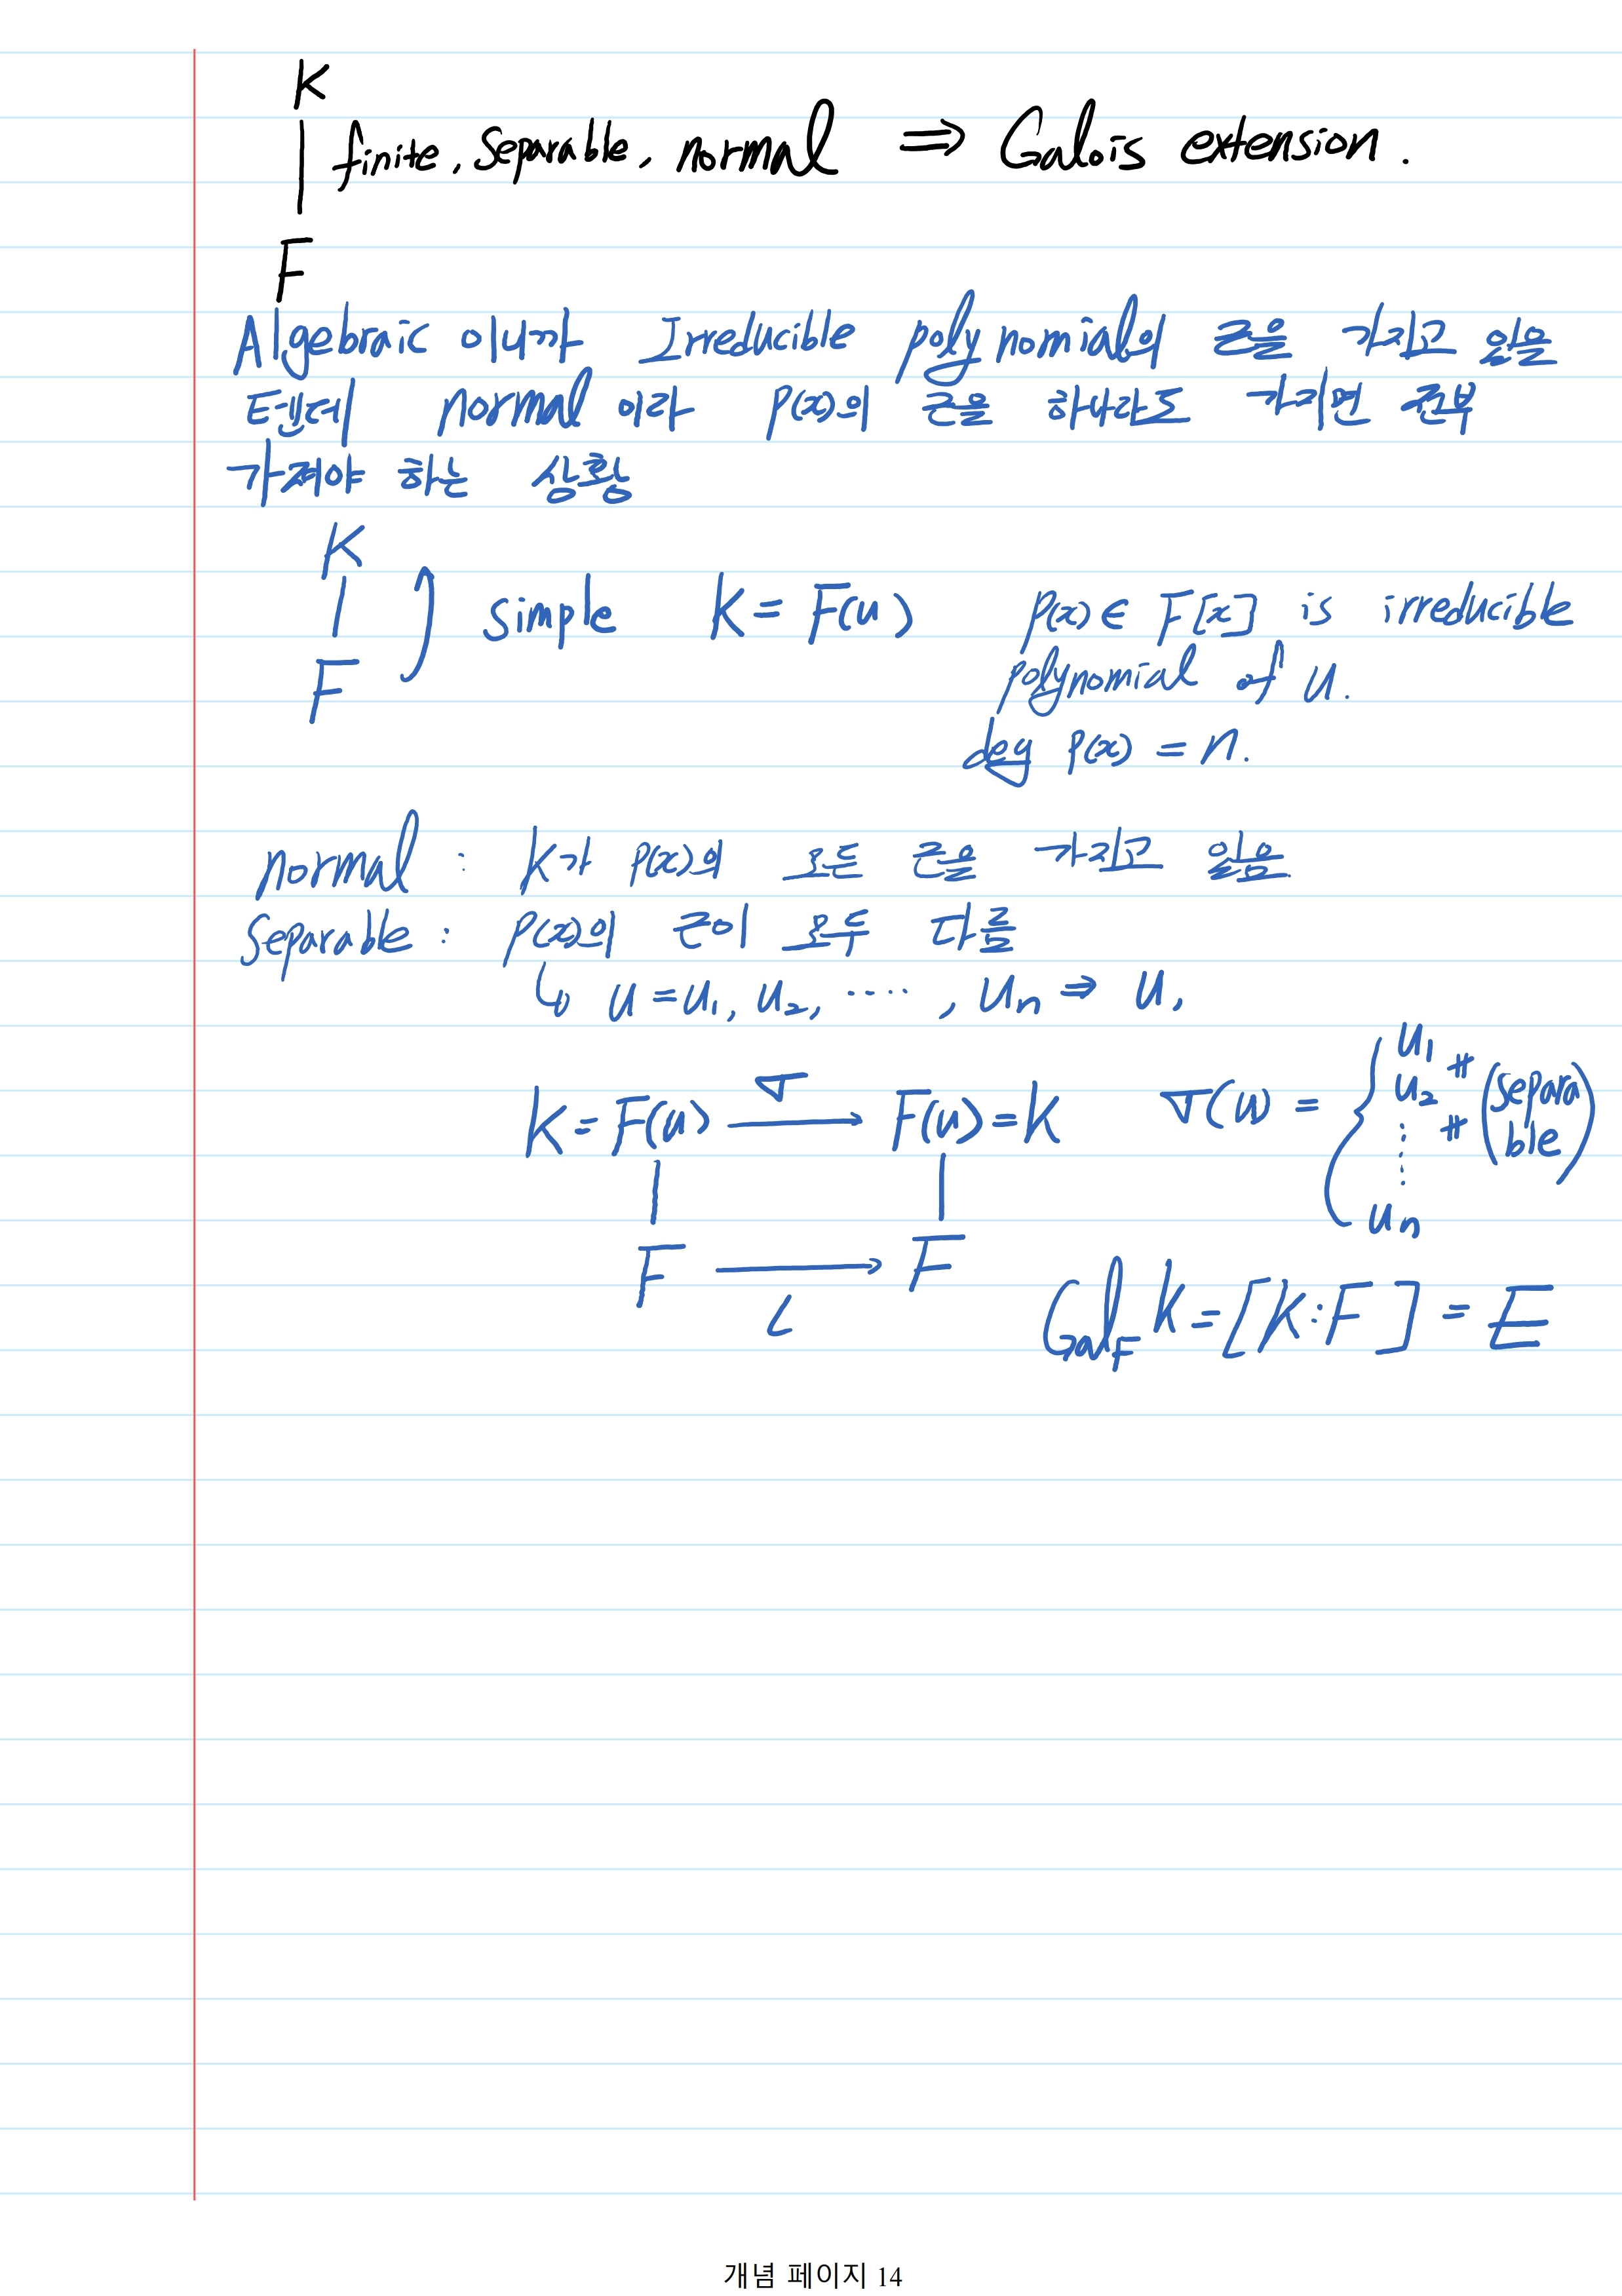 K
| finite, separable, normal ⇒ Galois extension.
F
Algebraic 이니까 Irreducible polynomial의 근을 가지고 있을
텐데 normal 이라 P(x)의 근을 하나라도 가지면 전부
가져야 하는 상황
K
| simple K = F(u) P(x) ∈ F[x] is irreducible
F polynomial of u.
deg P(x) = n.
normal : K가 P(x)의 모든 근을 가지고 있음
Separable : P(x)의 근이 모두 다름
↳ u = u₁, u₂, ····, uₙ ⇒ u,
K = F(u) →σ F(u) = K σ(u) = { u₁ ≠ u₂ ≠ ⋮ uₙ (separable)
| |
F →ι F
Gal_F K = [K:F] =
개념 페이지 14